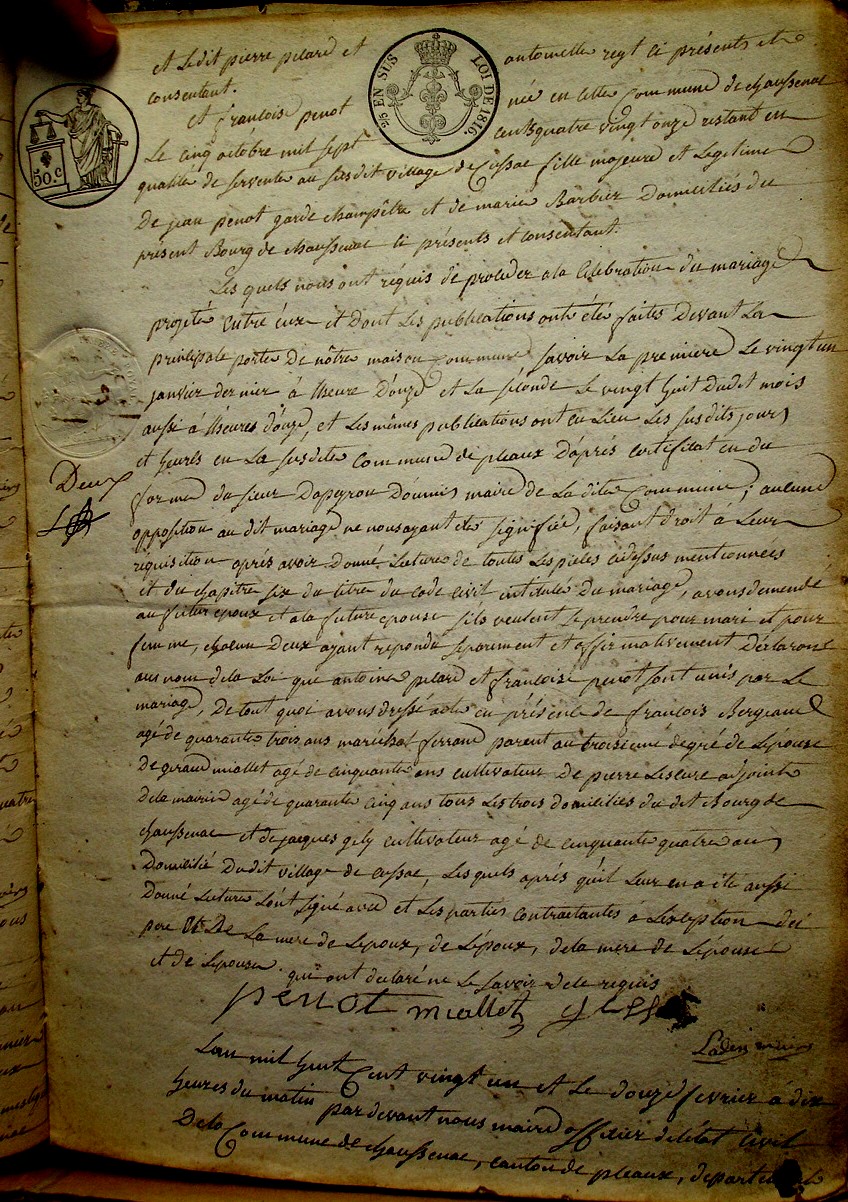 et Ledit pierre pelard et antoinette rey ci présents et
consentant.
2/5 EN SUS LOI DE 1816
50.c
et francoise penot née en cette Commune de chaussenac
Le cinq octobre mil sept cents quatre vingt onze restant en
qualité de servente au susdit village de Cussac fille majeure et Legitime
De jean penot garde champêtre et de marie Barbier Domiciliés du
présent Bourg de chaussenac ci présents et consentant.
Les quels nous ont réquis de procéder a la Célébration du mariage
projeté entre eux et dont Les publications ont été faites Devant La
principale porte De nôtre maison Commune savoir La premiere Le vingt un
janvier dernier à lheure D'onze et La séconde Le vingt huit Dudit mois
aussi à lheures d'onze, et Les mêmes publications ont eu Lieu Les susdits jours
et heures en La susdite Commune de pleaux D'aprés certificat en du
forme du sieur Dapeyrou maire de La dite Commune; aucune
Deux
opposition au dit mariage ne nous ayant été signifiée, faisant droit à Leur
réquisition aprés avoir Donné Lecture de toutes Les pieces cidessus mentionnées
et du chapitre six du titre du code civil intitulé Du mariage, avons demendé
au futur epoux et a la future epouse sils veulent se prendre pour mari et pour
femme, chacun Deux ayant repondu séparement et affirmativement Déclarons
au nom de la Loi que antoine pelard et francoise penot sont unis par Le
mariage, De tout quoi avons dressé acte en présence de francois Bergeaud
agé de quarante trois ans maréchal ferrand parent au troisieme dégré de Lépouse
De geraud miallet agé de cinquante ans cultivateur De pierre Lescure adjoint
De la mairie agé de quarante cinq ans tous Les trois domiciliés du dit Bourg de
chaussenac et de jacques gely cultivateur agé de cinquante quatre ans
Domicilié Dudit village de cussac, Les quels aprés qu'il Leur en a été aussi
Donné Lecture L'ont signé avec et Les parties contractantes à L'exception du
pere De La mere de Lepoux, de Lépoux, de la mere de Lepouse
et de Lepouse qui ont declaré ne Le savoir de ce requis
penot miallet
L'an mil huit Cent vingt un et Le douze fevrier à dix
heures du matin par devant nous maire officier de létat Civil
De la Commune de chaussenac, canton de pleaux, departement